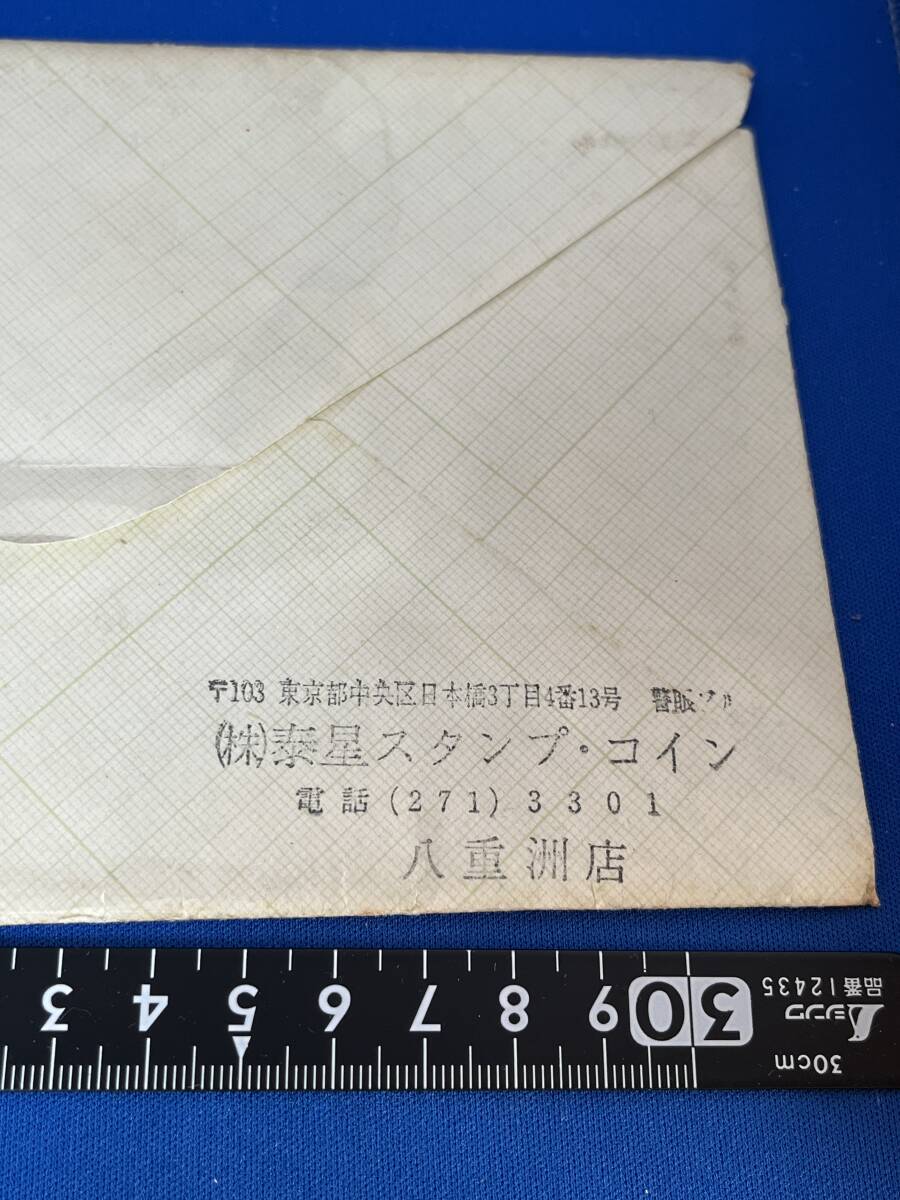 〒103 東京都中央区日本橋3丁目4番13号 警販ビル
(株)泰星スタンプ・コイン
電話(271)3301
八重洲店
3 4 5 6 7 8 9 30
シンワ
品番12435
30cm